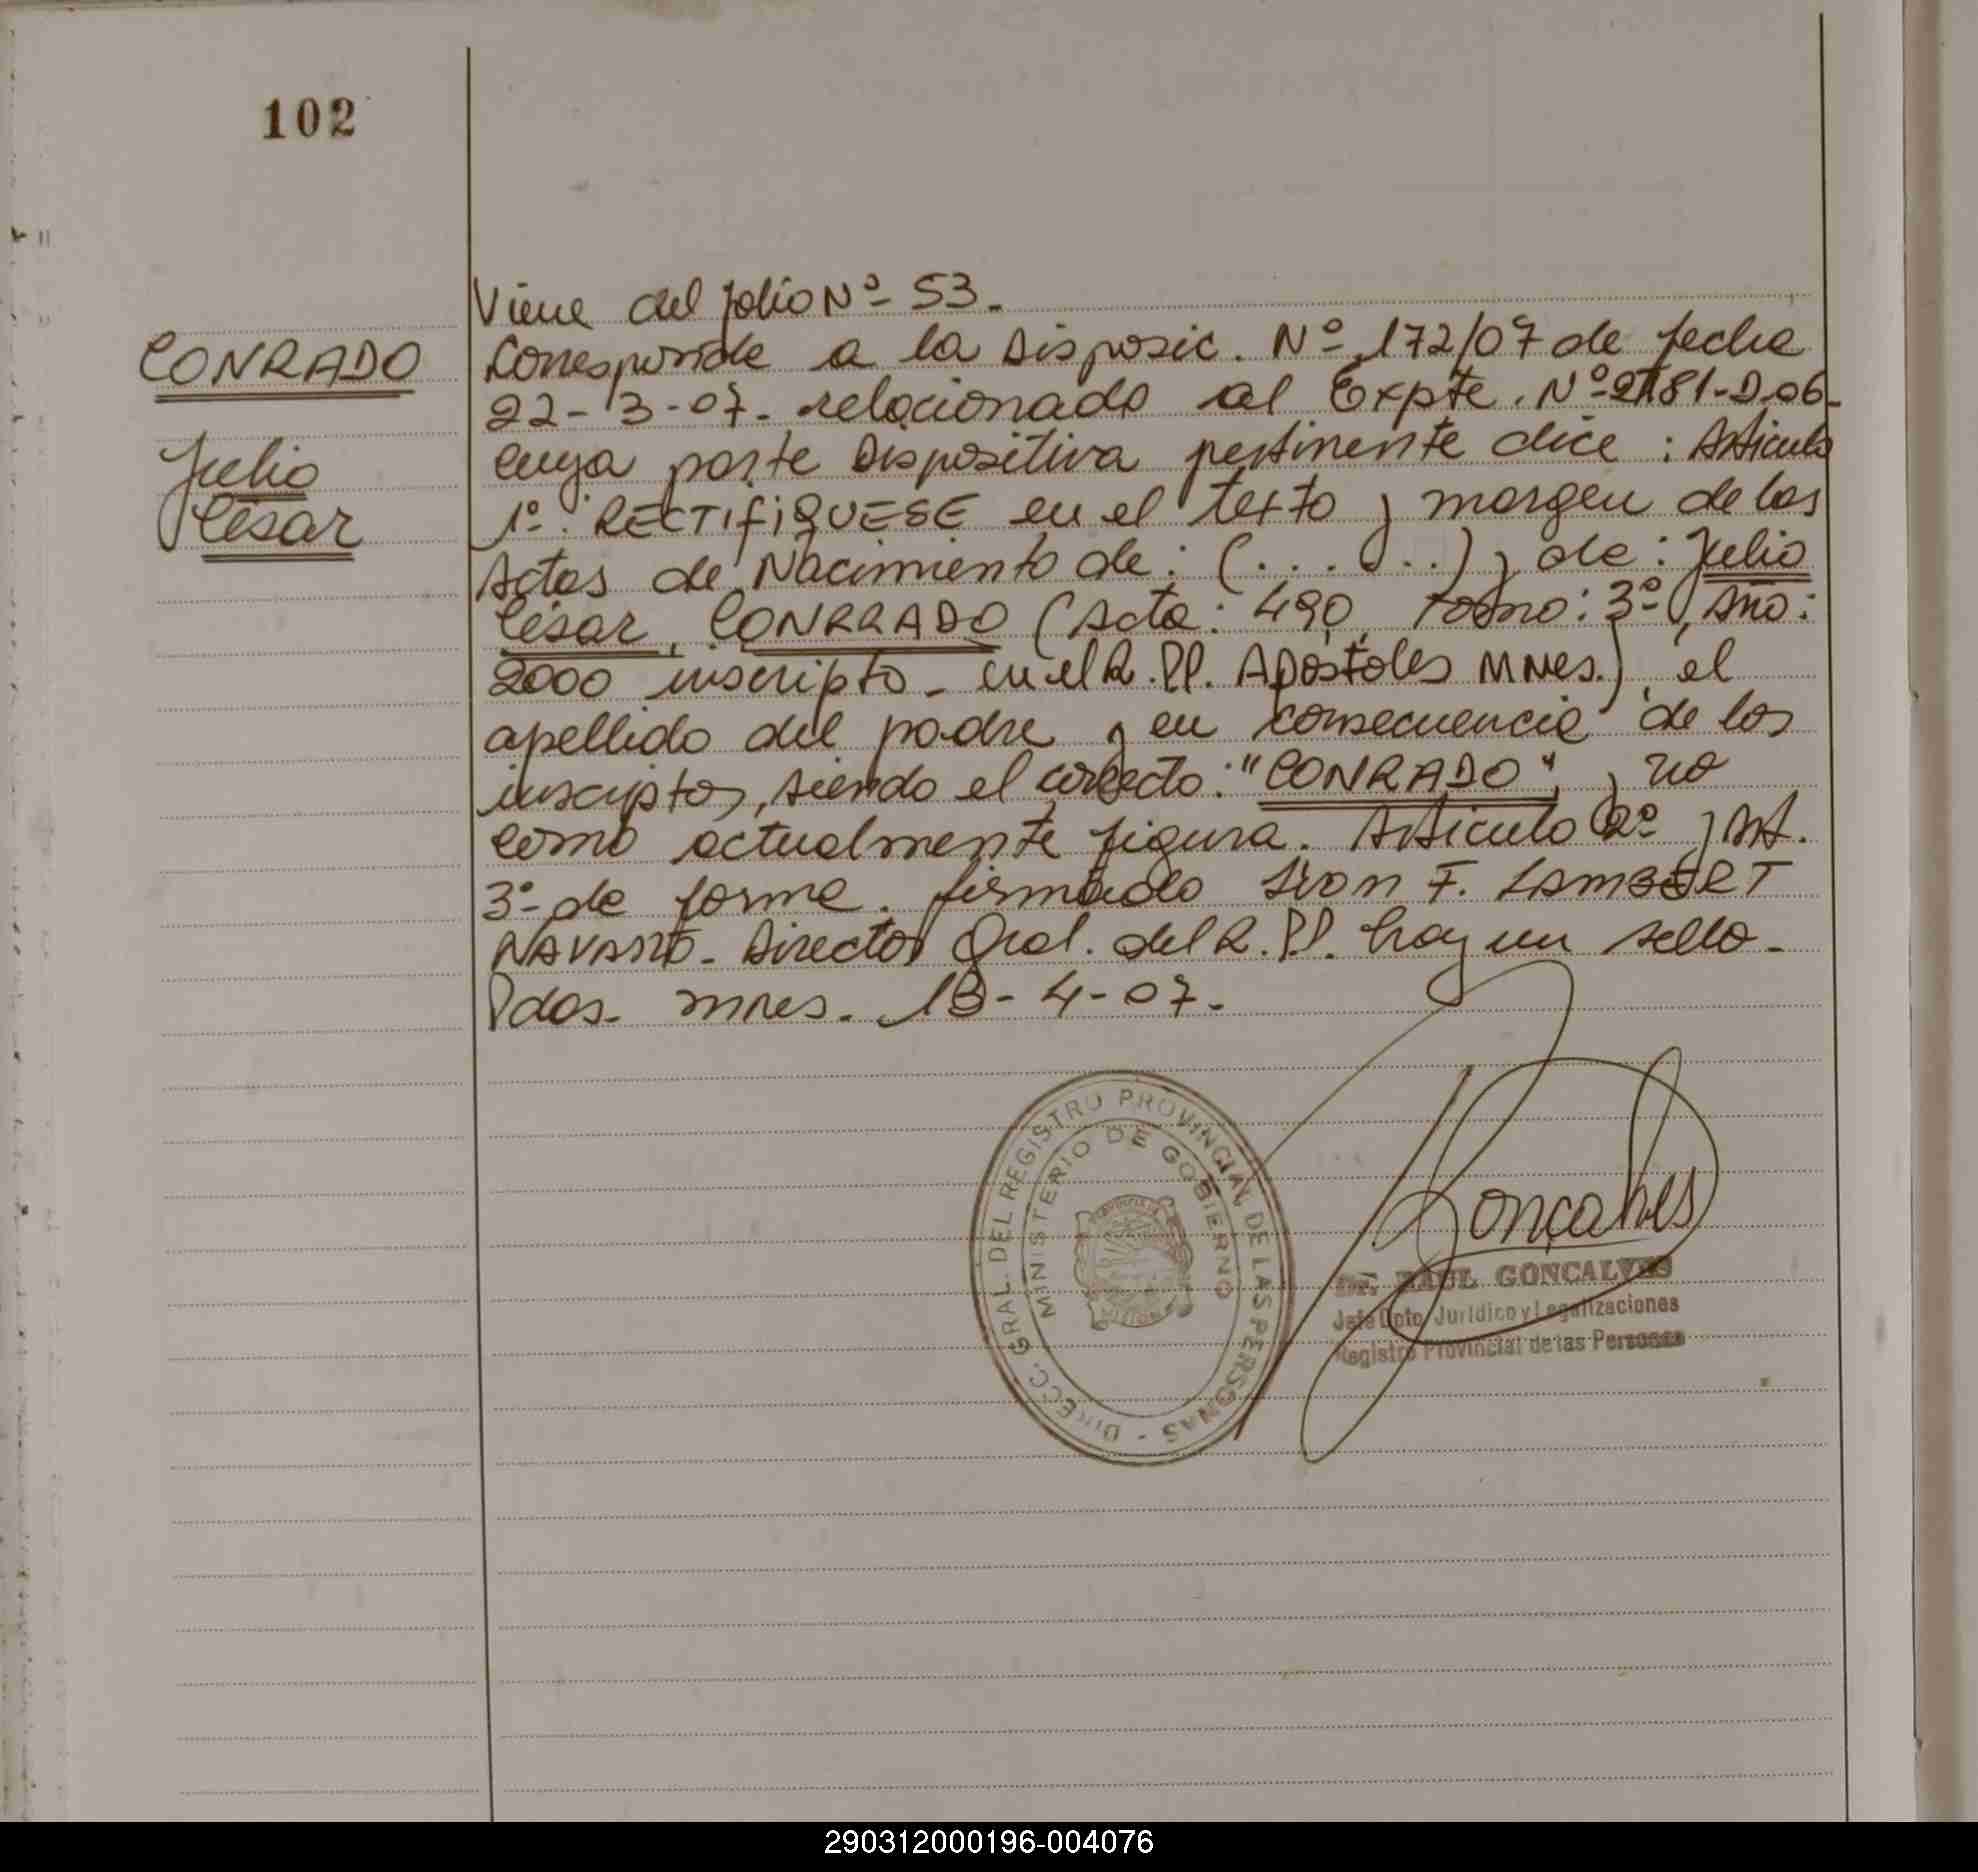 102
CONRADO
Julio
César
Viene del folio Nº 53.
Corresponde a la Disposic. Nº 172/07 de fecha
22-3-07. relacionado al Expte. Nº 2181-D-06-
cuya parte Dispositiva pertinente dice: Articulo
1º. RECTIFIQUESE en el texto y margen de las
Actas de Nacimiento de: (......) y de: Julio
César, CONRRADO (Acta: 490, Tomo: 3º, Año:
2000 inscripto - en el R.PP. Apóstoles MNes.), el
apellido del padre y en consecuencia de los
inscriptos, siendo el correcto: "CONRADO", y no
como actualmente figura. Articulo 2º y Art.
3º de forma. firmado F. LAMBERT
NAVARRO - Director Gral. del R.PP. hay un sello.
Pdas. mnes. 18-4-07.
DIRECC. GRAL. DEL REGISTRO PROVINCIAL DE LAS PERSONAS -
MINISTERIO DE GOBIERNO
Goncalves
Dr. RAUL GONCALVES
Jefe Dpto. Jurídico y Legalizaciones
Registro Provincial de las Personas
290312000196-004076